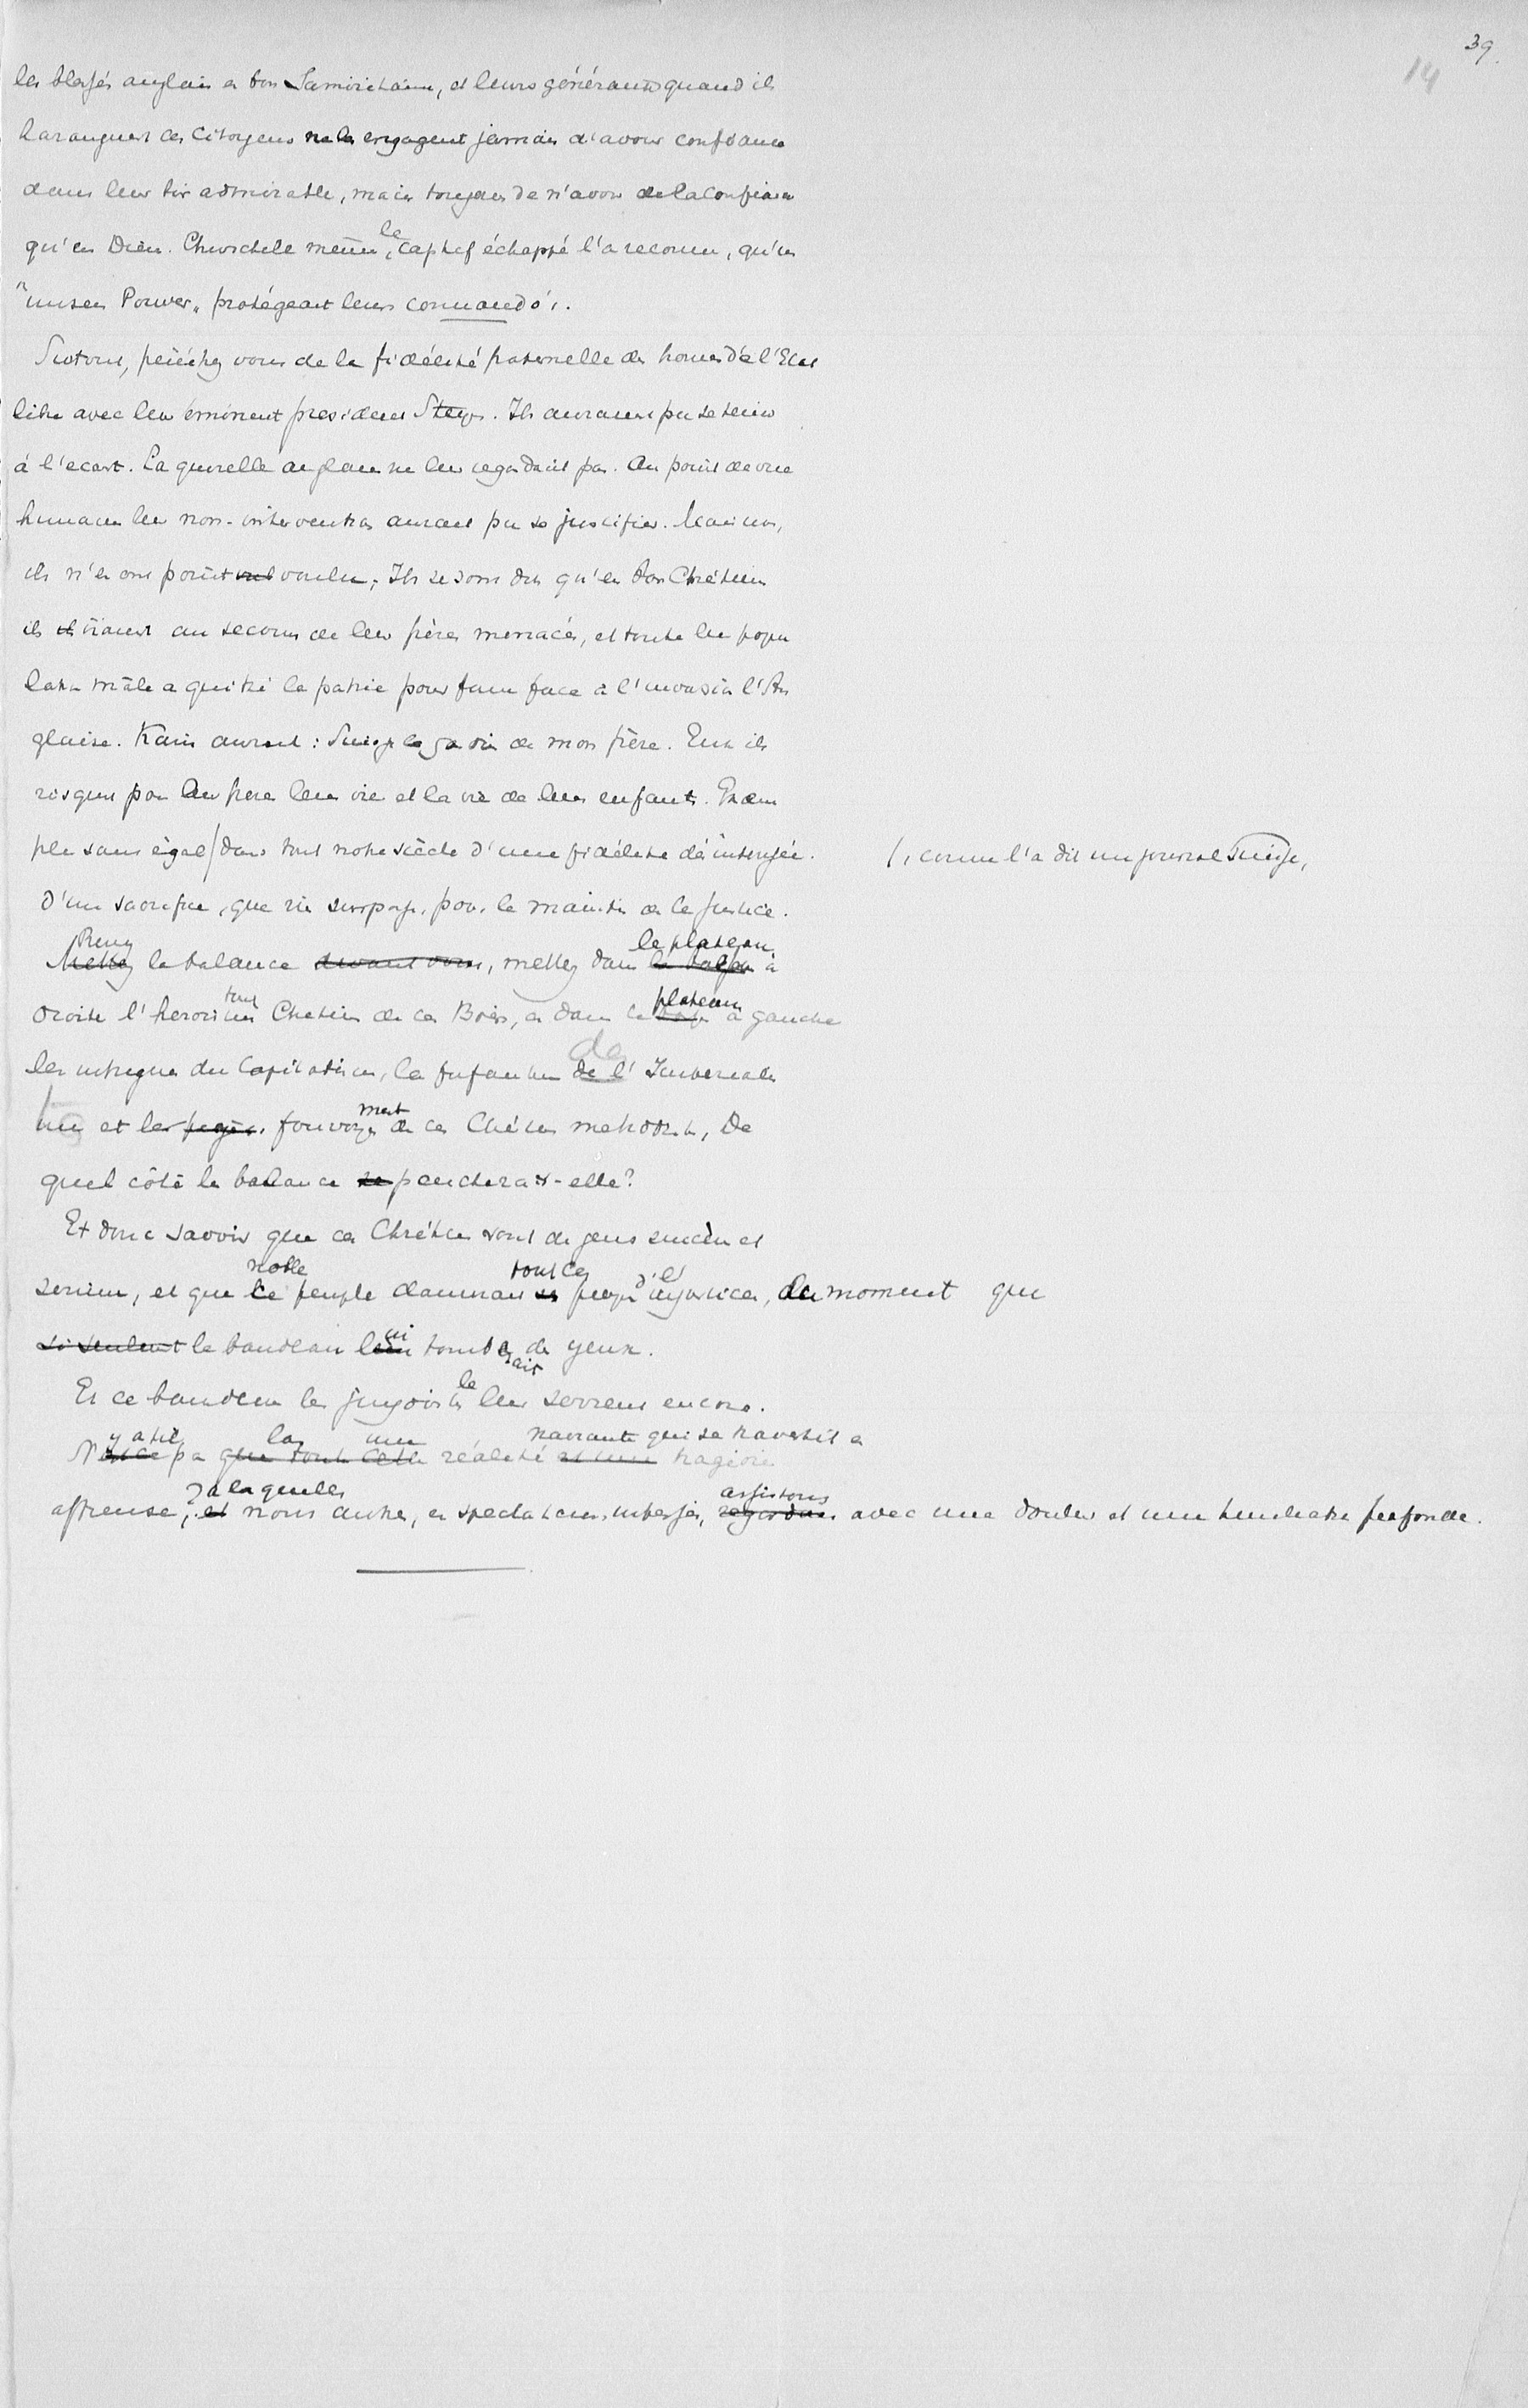 39.
14
les blessés anglais en bon Samaritain, et leurs généraux quand ils
haranguent ces Citoyens ne les engagent jamais d'avoir confiance
dans leur tir admirable, mais toujours de n'avoir de la Confiance
qu'en Dieu. Churchill même, le captif échappé l'a reconnu, qu'un
"unseen Power" protégeait leurs commando's.
Surtout, vous de la fidélité fraternelle des hommes de l'Etat
libre avec leur éminent president Steyn. Ils auraient pu se tenir
à l'ecart. La querelle anglaise ne les regardait pas. Au point de vue
humain leur non-intervention aurait pu se justifier. Mais non,
ils n'en ont point voulu; Ils se sont dit qu'en bon Chrétien
ils iraient au secours de leur frères menacés, et toute la popu
lation mâle a quitté la patrie pour faire face à l'invasion l'An
glaise. Kain aurait: Suis-je le gardien de mon frère. Eux ils
risquent pour leur frère leur vie et la vie de leurs enfants. Exem
ple sans égal / dans tout notre siècle d'une fidélité désinteressée.
/, comme l'a dit un journal Suisse,
D'un sacrifice, que rien surpasse, pour le maintien de la Justice.
Prenez le plateau
Mettez la balance devant vous, mettez dans à
tout plateau
droite l'heroisme Chrétien de ces Boërs, et dans le à gauche
de
les intrigues du Capitalisme, la de l' Imperialis
ment
me et les fourvoye de ces Chrétiens methodistes, De
quel côté la balance se penchera-t-elle?
Et donc savoir que ces Chrétiens sont des gens sincères et
noble tout ce d'
serieux, et que le peuple damnerait injustices, du moment que
si seulement le bandeau lui tombait des yeux.
le
Et ce bandeau les jingoistes leur serrent encore.
y a t'il la une navrante qui se travestit en
N'est ce pas que toute cette réalité est une tragédie
à laquelle assistons
affreuse, et nous autres, en spectateurs, regardons avec une douleur et une humiliation profonde.